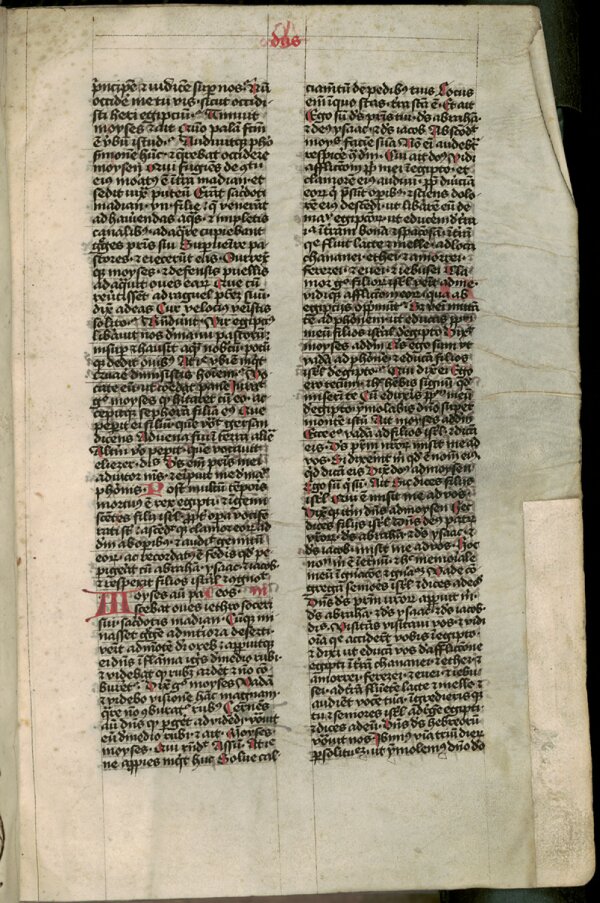 dus
p̄ncipē ⁊ iudicē sup̱ nos· Nū
occidē me tu vis· sicut occidi-
sti heri egiptiū· Timuit
moyses ⁊ ait Quō palā fcm̄
ē v̄bū istud· Audiuitq; pho
ẜmonē hūc ⁊ q̄rebat occidere
moysen̄ Qui fugiēs de 9ſpectu
eiꝰ moatꝰ ē ī t̄ra madian· et
sedit iuxͣ puteū Erāt sacdoti
madian· vii· filie q̄ venerāt
ad hauriendas aq̄s· ⁊ impletis
canalibꝫ· adaq̄re cupiebant
ḡges p̄ris sui Supuen̄e pa-
stores· ⁊ eiecerūt eas· Surrex̄
q; moyses· ⁊ defensis puellis
adaquit oues earꝝ Que cū
reu̓tissēt ad raguel p̄rem suū·
dix̄ ad eas Cur velociꝰ venistis
solito· Rn̄derūt Vir egiptiꝰ
libauit nos d̄ manu pastorū·
insup̱ ⁊ hausit aq̄m nobiscū potū
q; dedit ouibꝫ At ille vbi ē inqt
Quare dimisistis hoīem· Vo-
cate eū ut comedat panē Iurauit
g̊ moyses qd̓ hītaret cū eo· ac-
cepitq; sephorā filiā eiꝰ Que
pepit ei filiū· quē vocauit gersan
dicens Aduena fui ī terra aliēa
Alt̓m vo pepit· quē vocauit
eliezer· dīs Ds em̄ pris mei
adiutor mꝰ· ⁊ eripuit me d̄ manu
phōnis· Post multū tp̄oris
mortuꝰ ē rex egipti· ⁊ ingemi-
scētes filii isrl̓· ppt̓ opa vocife-
rati st̄· ascēditq; clamor eorꝝ ad
dm̄ ab opibꝫ· ⁊ audiit gemitū
eorꝝ· ac recordatꝰ ē fedis qd̓ pe-
pigerat cū abrahā· ysaac· ⁊ iacob·
⁊ respexit filios israel· ⁊ agnouit
eos· III
Moyses aū pa-
scebat oues iethro soceri
sui· sacdotis madian· Cūq; mi-
nasset ḡgē ad int̓iora deserti·
venit ad montē dī oreb· ⁊ apparuitq;
ei dn̄s ī flāma ignis d̄ medio rubi·
⁊ videbat qd̓ rubꝰ ardet ⁊ nō cō-
buret̓· Dix̄ g̊ moyses Vadā
⁊ videbo visionē hāc magnam·
quare nō 9burat̓ rubꝰ Cernēs
aū dn̄s qd̓ p̱geret ad videdū· vocauit
eū d̄ medio rubi· ⁊ ait Moyses
moyses· Qui rn̄dit Assū· At ille
ne appies inqt huc Solue cal-
ciam̄tū de pedibꝫ tuis Locus
em̄ ī quo stas· t̓ra sc̄a ē· Et ait
Ego sū ds p̄ris tui· ds abrahā·
⁊ deꝰ ysaac· ⁊ ds iacob Abscōdit
moyses faciē suā· Nō em̄ audebat
respicē ꝯ̄ dm̄· Cui ait dn̄s Vidi
afflictiōm pp̄li mei ī egipto· et
clamorē eiꝰ audiui· ppt̓ duriciā
eorꝝ q̄ p̄sūt opibꝫ· ⁊ sciens dolo-
rē eiꝰ descēdi ut libarē eū de
manꝰ egiptiorꝝ ut educerē d̄ t̓ra
illa ī t̓ram bonā ⁊ spaciosā ī t̓rā
que fluit lacte ⁊ melle· ad loca
chananei· et ethei· ⁊ amorrei
ferezei· ⁊ euei· ⁊ iebusei Cla-
mor g̊ filiorꝝ isrl̓ venit ad me·
vidiq; afflictōem eorꝝ· qua ab
egiptiis opp̓mūt̓· Sꝫ veni mittā
te ad phōnem· ut educas pp̄lm
meū filios isrl̓ de egipto Dixitq;
moyses ad dm̄ Qs ego sum ut
vadā ad phōnē ⁊ educā filios
isrl̓ de egipto· Qui dix̄ ei Ego
ero tecum· ⁊ hoc hēbis signū qd̓
miserī te Cū eduxeris pp̄lm meū
de egipto· ymolabis dn̄o sup̱
montē istū Ait moyses ad dm̄
Ecce ego vadā ad filios isrl̓ ⁊ dicā
eis· Ds p̄rm̄ vr̄orꝝ misit me ad
vos· Si dixerint m̄ qd̓ ē nomē eiꝰ·
qd̓ dicā eis Dix̄ dn̄s ad moysen
Ego sū q̓ sū· Ait Sic dices filiis
isrl̓ Qui ē misit me ad vos·
Dixitq; itm̄ dn̄s ad moysen Hec
dices filiis isrl̓ Dn̄s deꝰ patrū
vr̄orꝝ· ds abrahā ⁊ ds ysaac· ⁊
ds iacob· misit me ad vos· Hoc
nom̄ m̄ ē ī et̓nū· ⁊ hoc memoriale
meū ī gnacōe ⁊ gnacōe Vade ꝯ-
gregā seniores isrl̓· ⁊ dices ad eos
Dn̄s ds p̄rm̄ vr̄orꝝ apparuit m̄·
ds abrahā· ⁊ ds ysaac· ⁊ ds iacob·
dīs· Visitās visitaui vos· ⁊ vidi
oīa que acciderūt vobis ī egipto·
⁊ dixi ut educā vos d̄ afflictōne
egipti ī t̓rā chananei· ⁊ ethei· ⁊
amorrei· ferezei· ⁊ euei· ⁊ iebu-
sei· ad t̓rā fluētē lacte ⁊ melle· ⁊
audiēt vocē tuā· ingredierisq;
tu ⁊ seniores isrl̓· ad regē egipti·
⁊ dices ad eū· Dn̄s ds hebreorū
vocauit nos· Ibimꝰ viā triū dierꝝ
ut ymolemꝰ dn̄o do